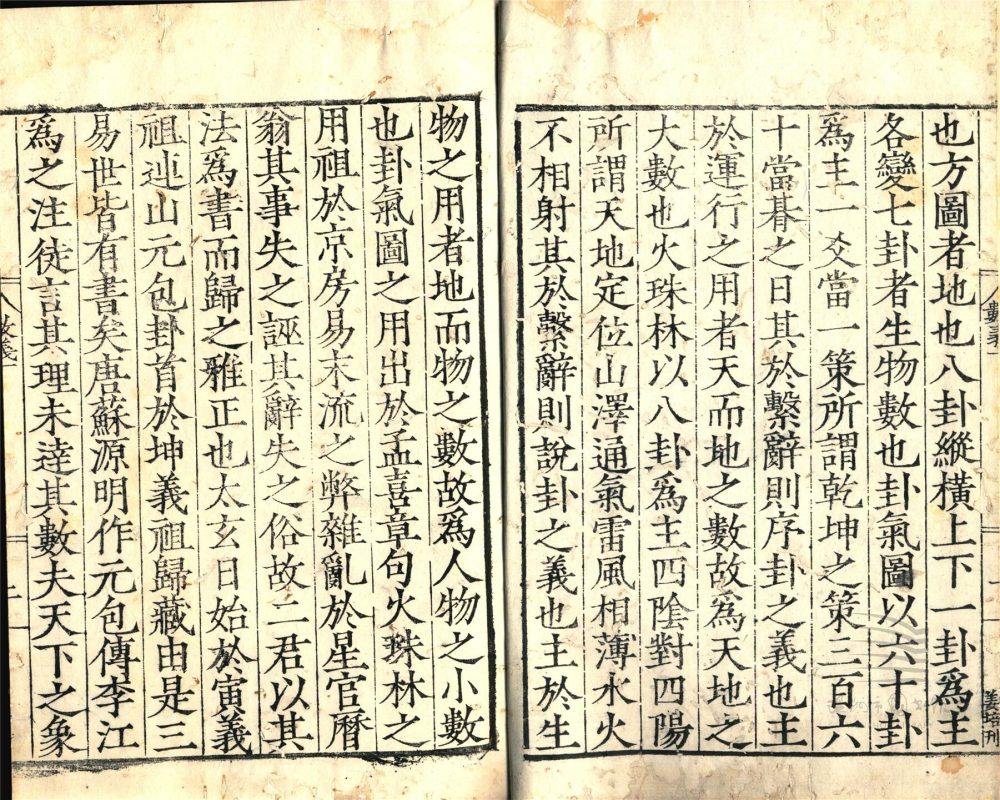 也方圖者地也八卦縱橫上下一卦爲主
各變七卦者生物數也卦氣圖以六十卦
爲主一爻當一策所謂乾坤之策三百六
十當朞之日其於繫辭則序卦之義也主
於運行之用者天而地之數故爲天地之
大數也火珠林以八卦爲主四陰對四陽
所謂天地定位山澤通氣雷風相薄水火
不相射其於繫辭則說卦之義也主於生
物之用者地而物之數故爲人物之小數
也卦氣圖之用出於孟喜章句火珠林之
用祖於京房易末流之弊雜亂於星官曆
翁其事失之誣其辭失之俗故二君以其
法爲書而歸之雅正也太玄日始於寅義
祖連山元包卦首於坤義祖歸藏由是三
易世皆有書矣唐蘇源明作元包傳李江
爲之注徒言其理未逹其數夫天下之象